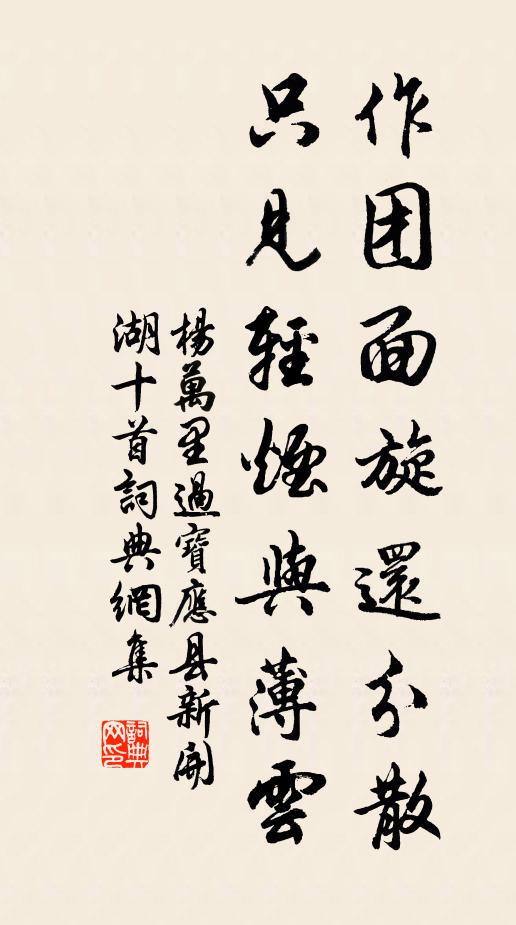 作团面旋還分散
只見輕煙與薄雲
楊萬里過寶應县新開
湖十首詞典網集
詞典
网印